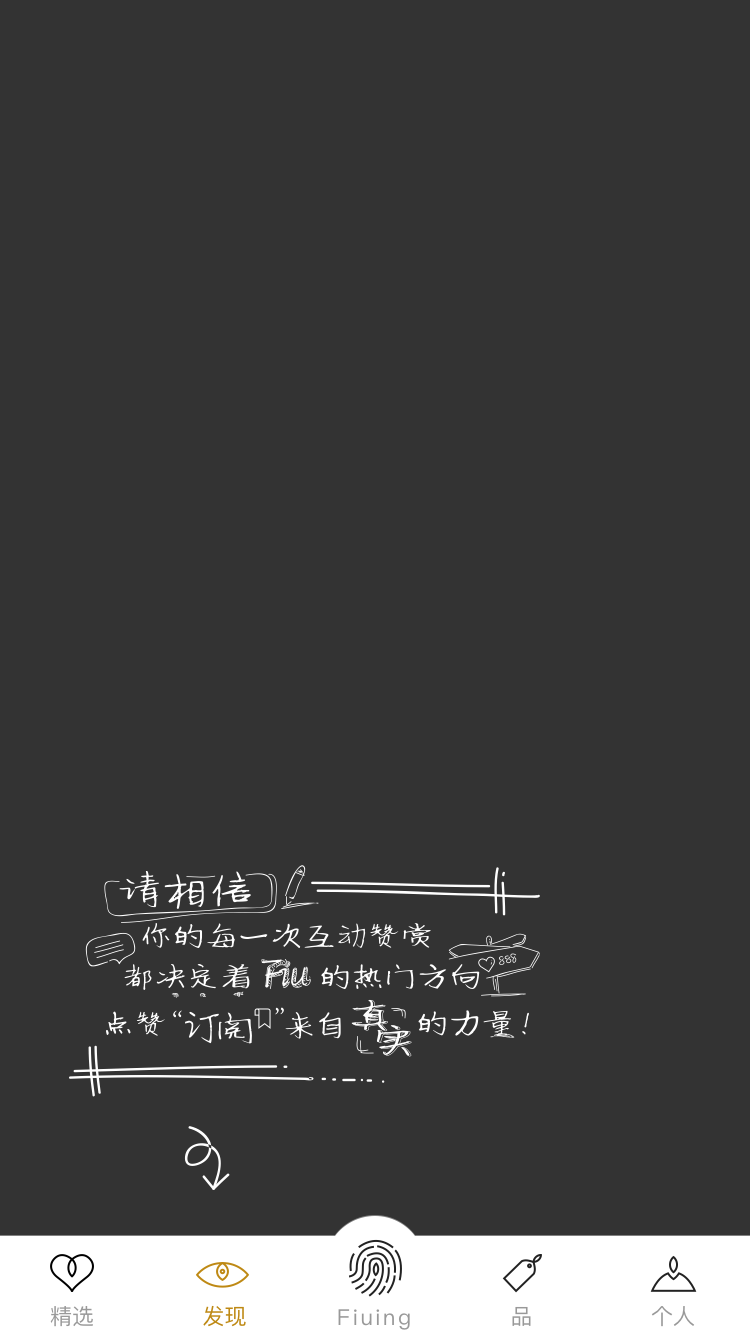 请相信
你的每一次互动赞赏
888
都决定着Fiu的热门方向
点赞“订阅”来自真实的力量！
精选
发现
Fiuing
品
个人